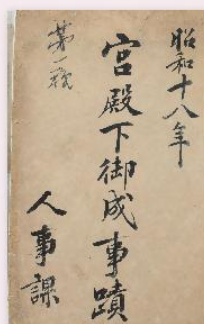 昭和十八年
宮殿下御成事蹟
第一号
人事課